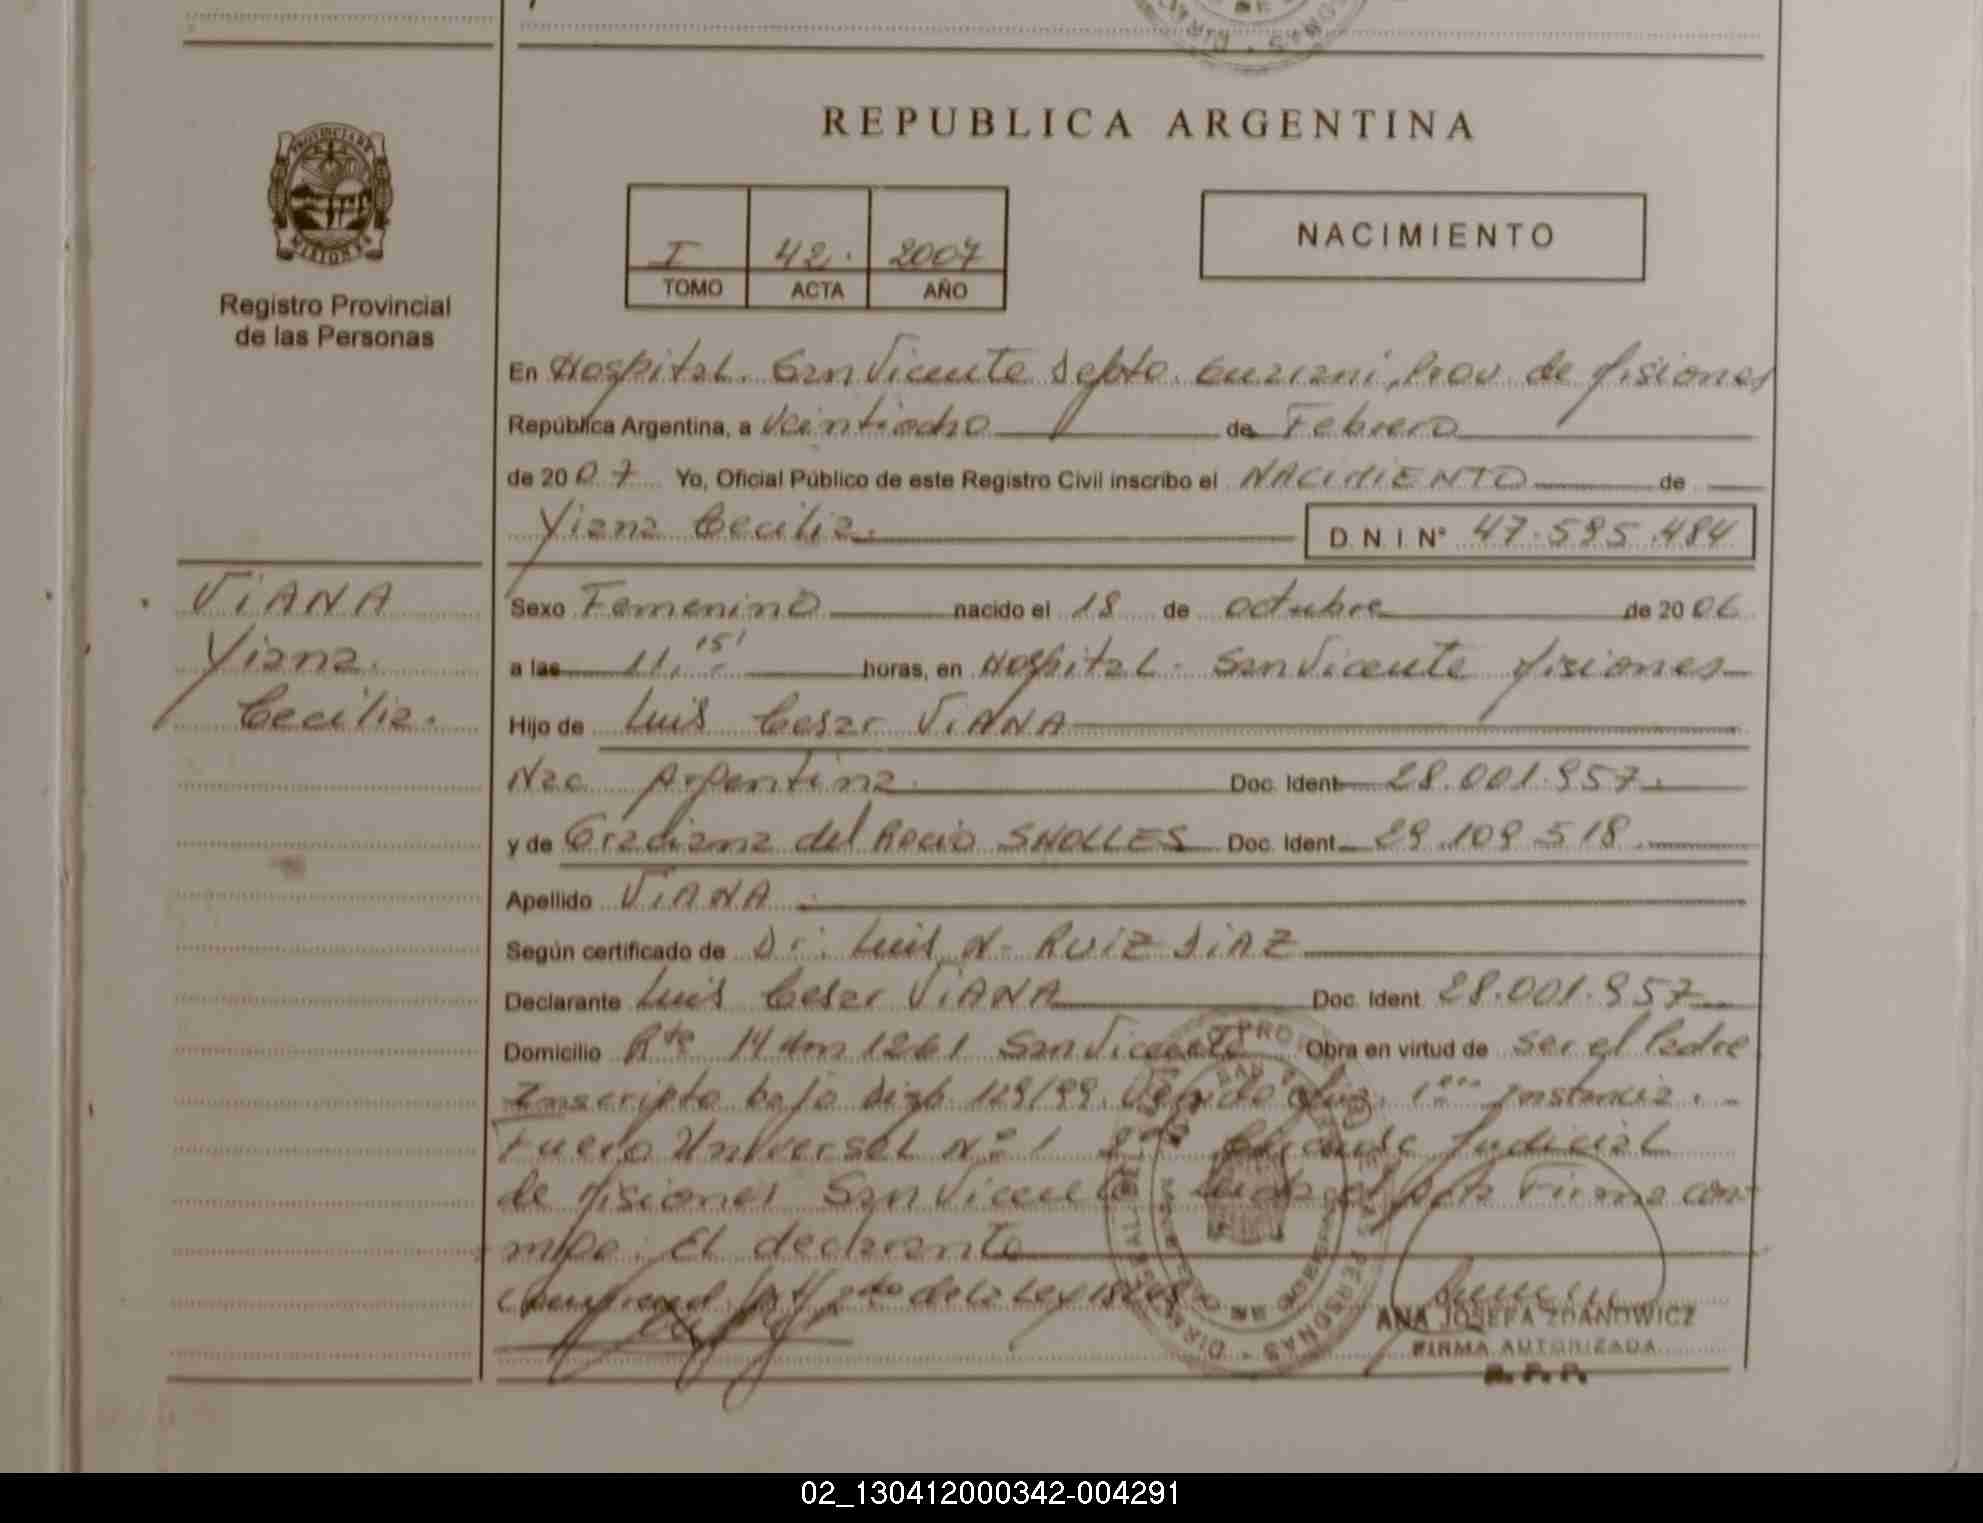 REPUBLICA ARGENTINA
PROVINCIA DE MISIONES
Registro Provincial
de las Personas
I 42. 2007
TOMO ACTA AÑO
NACIMIENTO
En Hospital. San Vicente Depto. Guarani, Prov. de Misiones
República Argentina, a Veintiocho de Febrero
de 2007 Yo, Oficial Público de este Registro Civil inscribo el NACIMIENTO de
Yiana Cecilia. D.N.I Nº 47.595.484
VIANA
Yiana.
Cecilia.
Sexo Femenino nacido el 18 de octubre de 2006
a las 11,15' horas, en Hospital - San Vicente Misiones
Hijo de Luis Cesar VIANA
Nac. Argentina. Doc. Ident 28.001.957.
y de Graciana del Rocio SNOLLES Doc. Ident. 29.109.518.
Apellido VIANA
Según certificado de Dr. Luis N. RUIZ DIAZ
Declarante Luis Cesar VIANA Doc. Ident. 28.001.957
Domicilio Rta 14 Km 1261 San Vicente Obra en virtud de ser el Padre
Inscripto bajo Disp. 129/99. 1era Instancia.
Fuero Universal Nº 1 2da Judicial
de Misiones San Vicente Firma con-
migo. El declarante
2do de la Ley
ANA JOSEFA ZDANOWICZ
FIRMA AUTORIZADA
R. P. P.
02_130412000342-004291